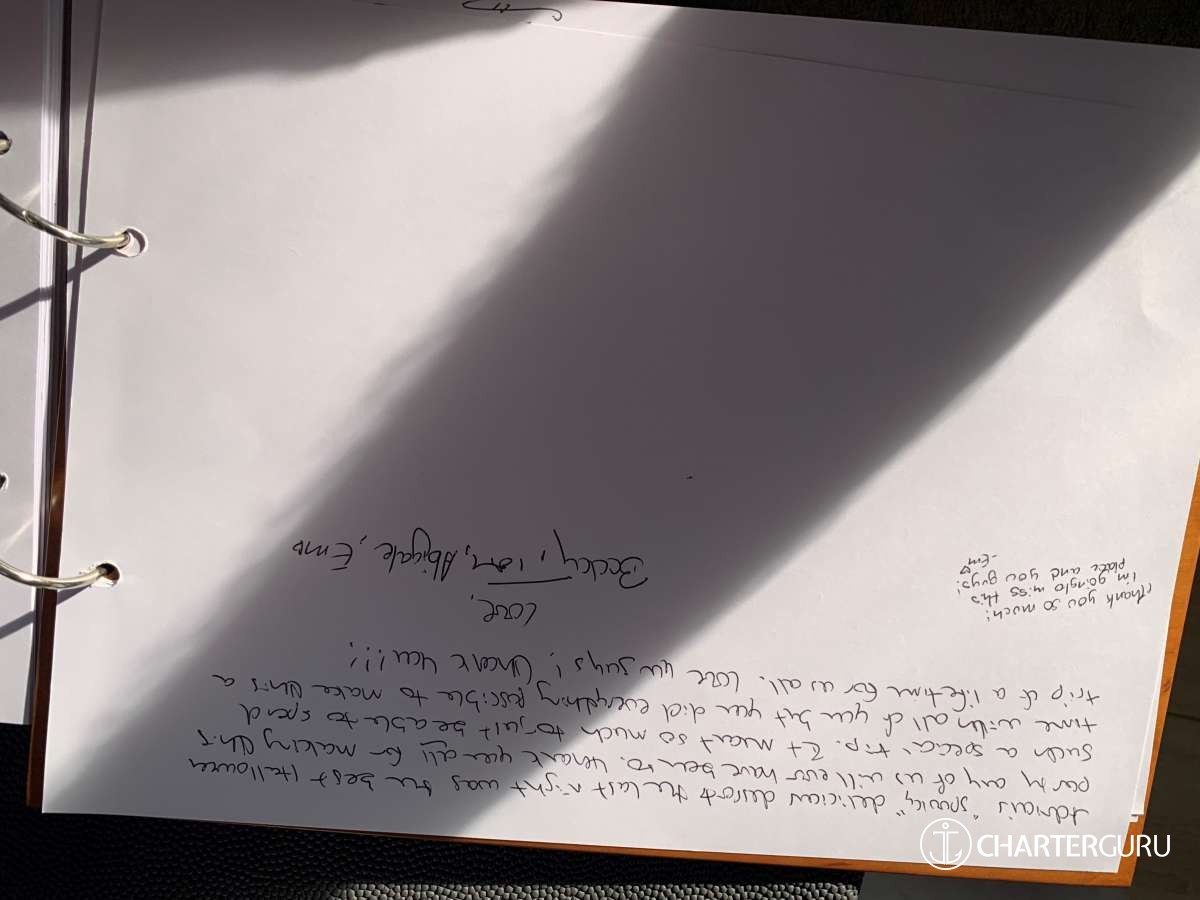 Adria's "spooky" delicious desert the last night was the best Halloween
party any of us will ever have been to. Thank you all for making this
such a special trip. It meant so much to just be able to spend
time with all of you but you did everything possible to make this a
trip of a lifetime for us all. Love you guys! Thank you!!!
Love,
Becky, Tom, Abigale, Emma
(Thank you so much!
I'm going to miss this
place and you guys!
-Em♡
CHARTERGURU